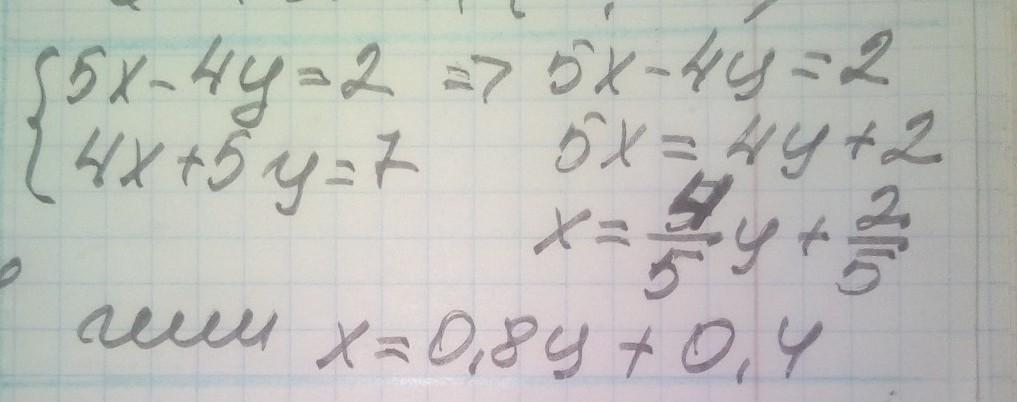 { 5x - 4y = 2 => 5x - 4y = 2
4x + 5y = 7 5x = 4y + 2
x = 4/5 y + 2/5
или x = 0,8y + 0,4